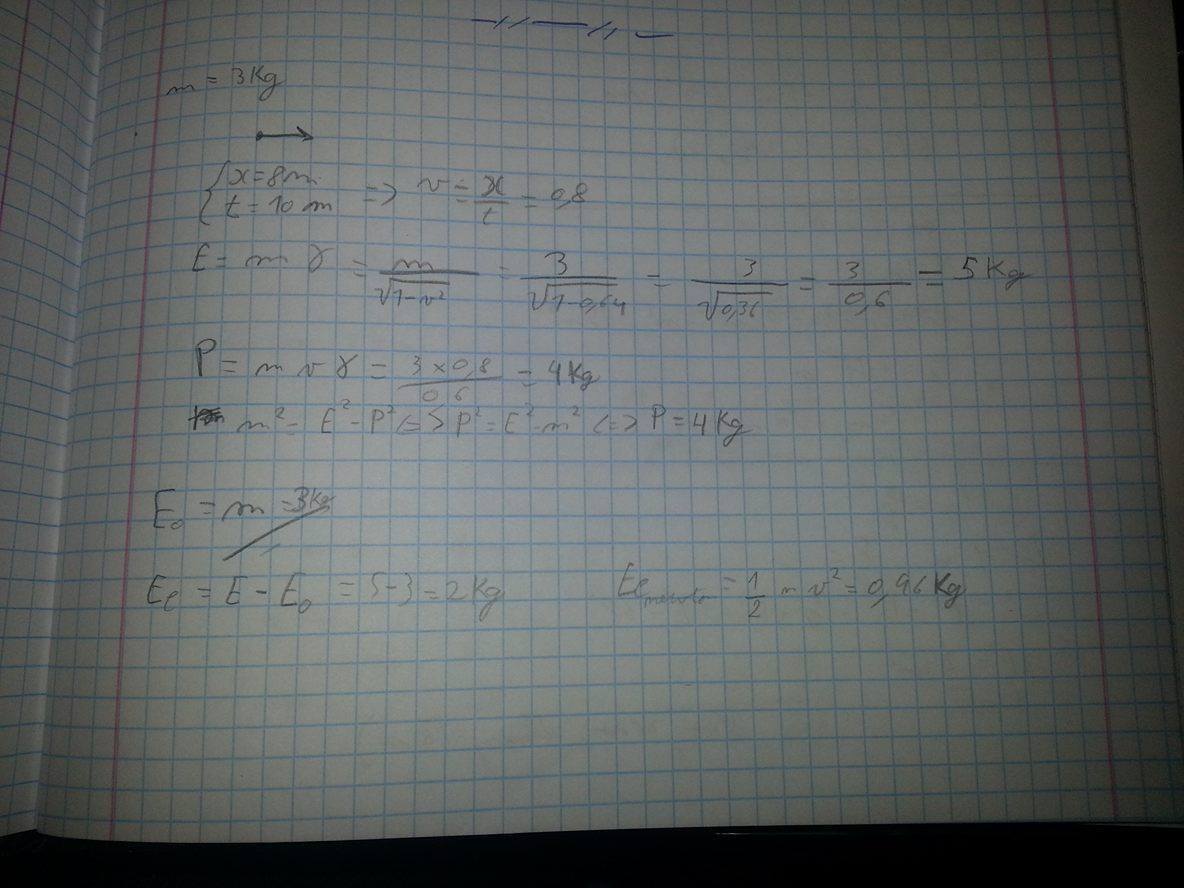 m = 3Kg
{ x = 8m
t = 10 m => v = x/t = 0,8
E = m γ = m/√(1-v²) = 3/√(1-0,64) = 3/√0,36 = 3/0,6 = 5 Kg
P = m v γ = (3 × 0,8)/(0 6) = 4Kg
m² = E² - P² <=> P² = E² - m² <=> P = 4 Kg
E₀ = m = 3Kg
Ec = E - E₀ = 5-3 = 2Kg
Ec = 1/2 m v² = 0,96 Kg